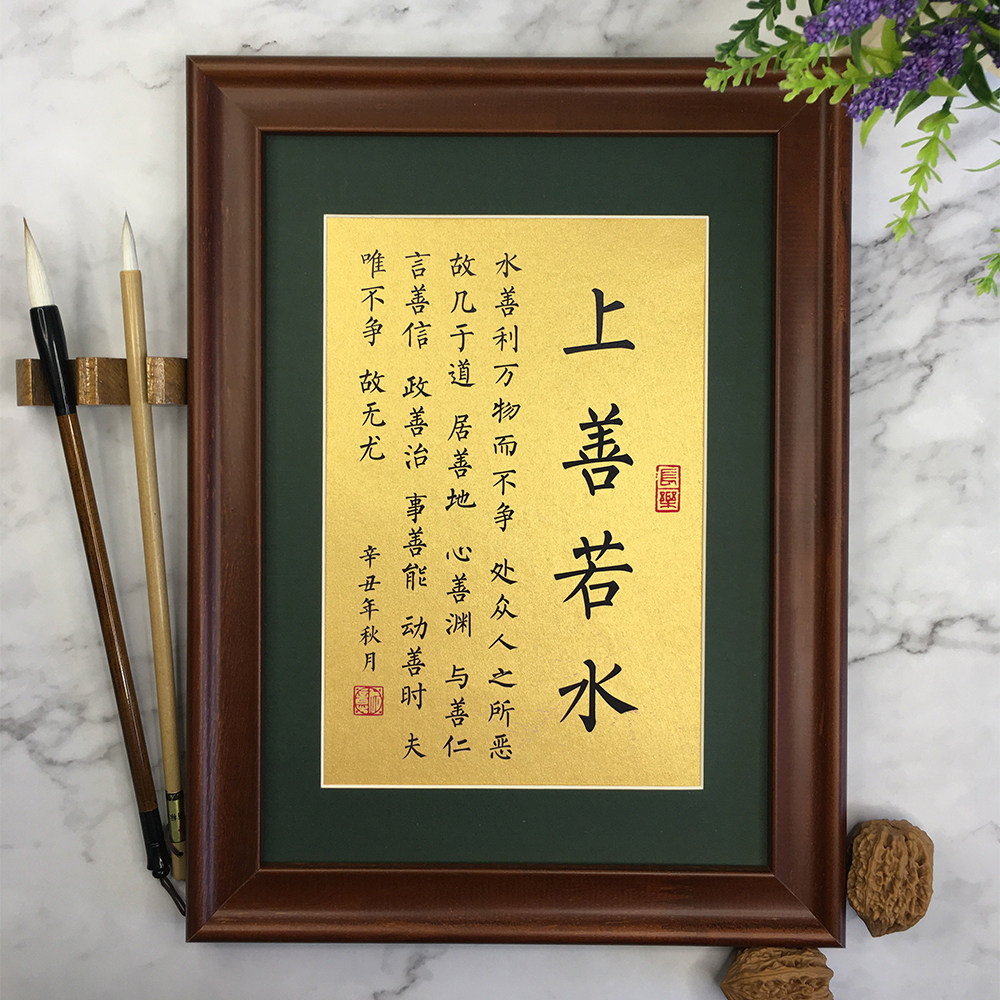 上善若水
水善利万物而不争 处众人之所恶
故几于道 居善地 心善渊 与善仁
言善信 政善治 事善能 动善时 夫
唯不争 故无尤
辛丑年秋月
長樂